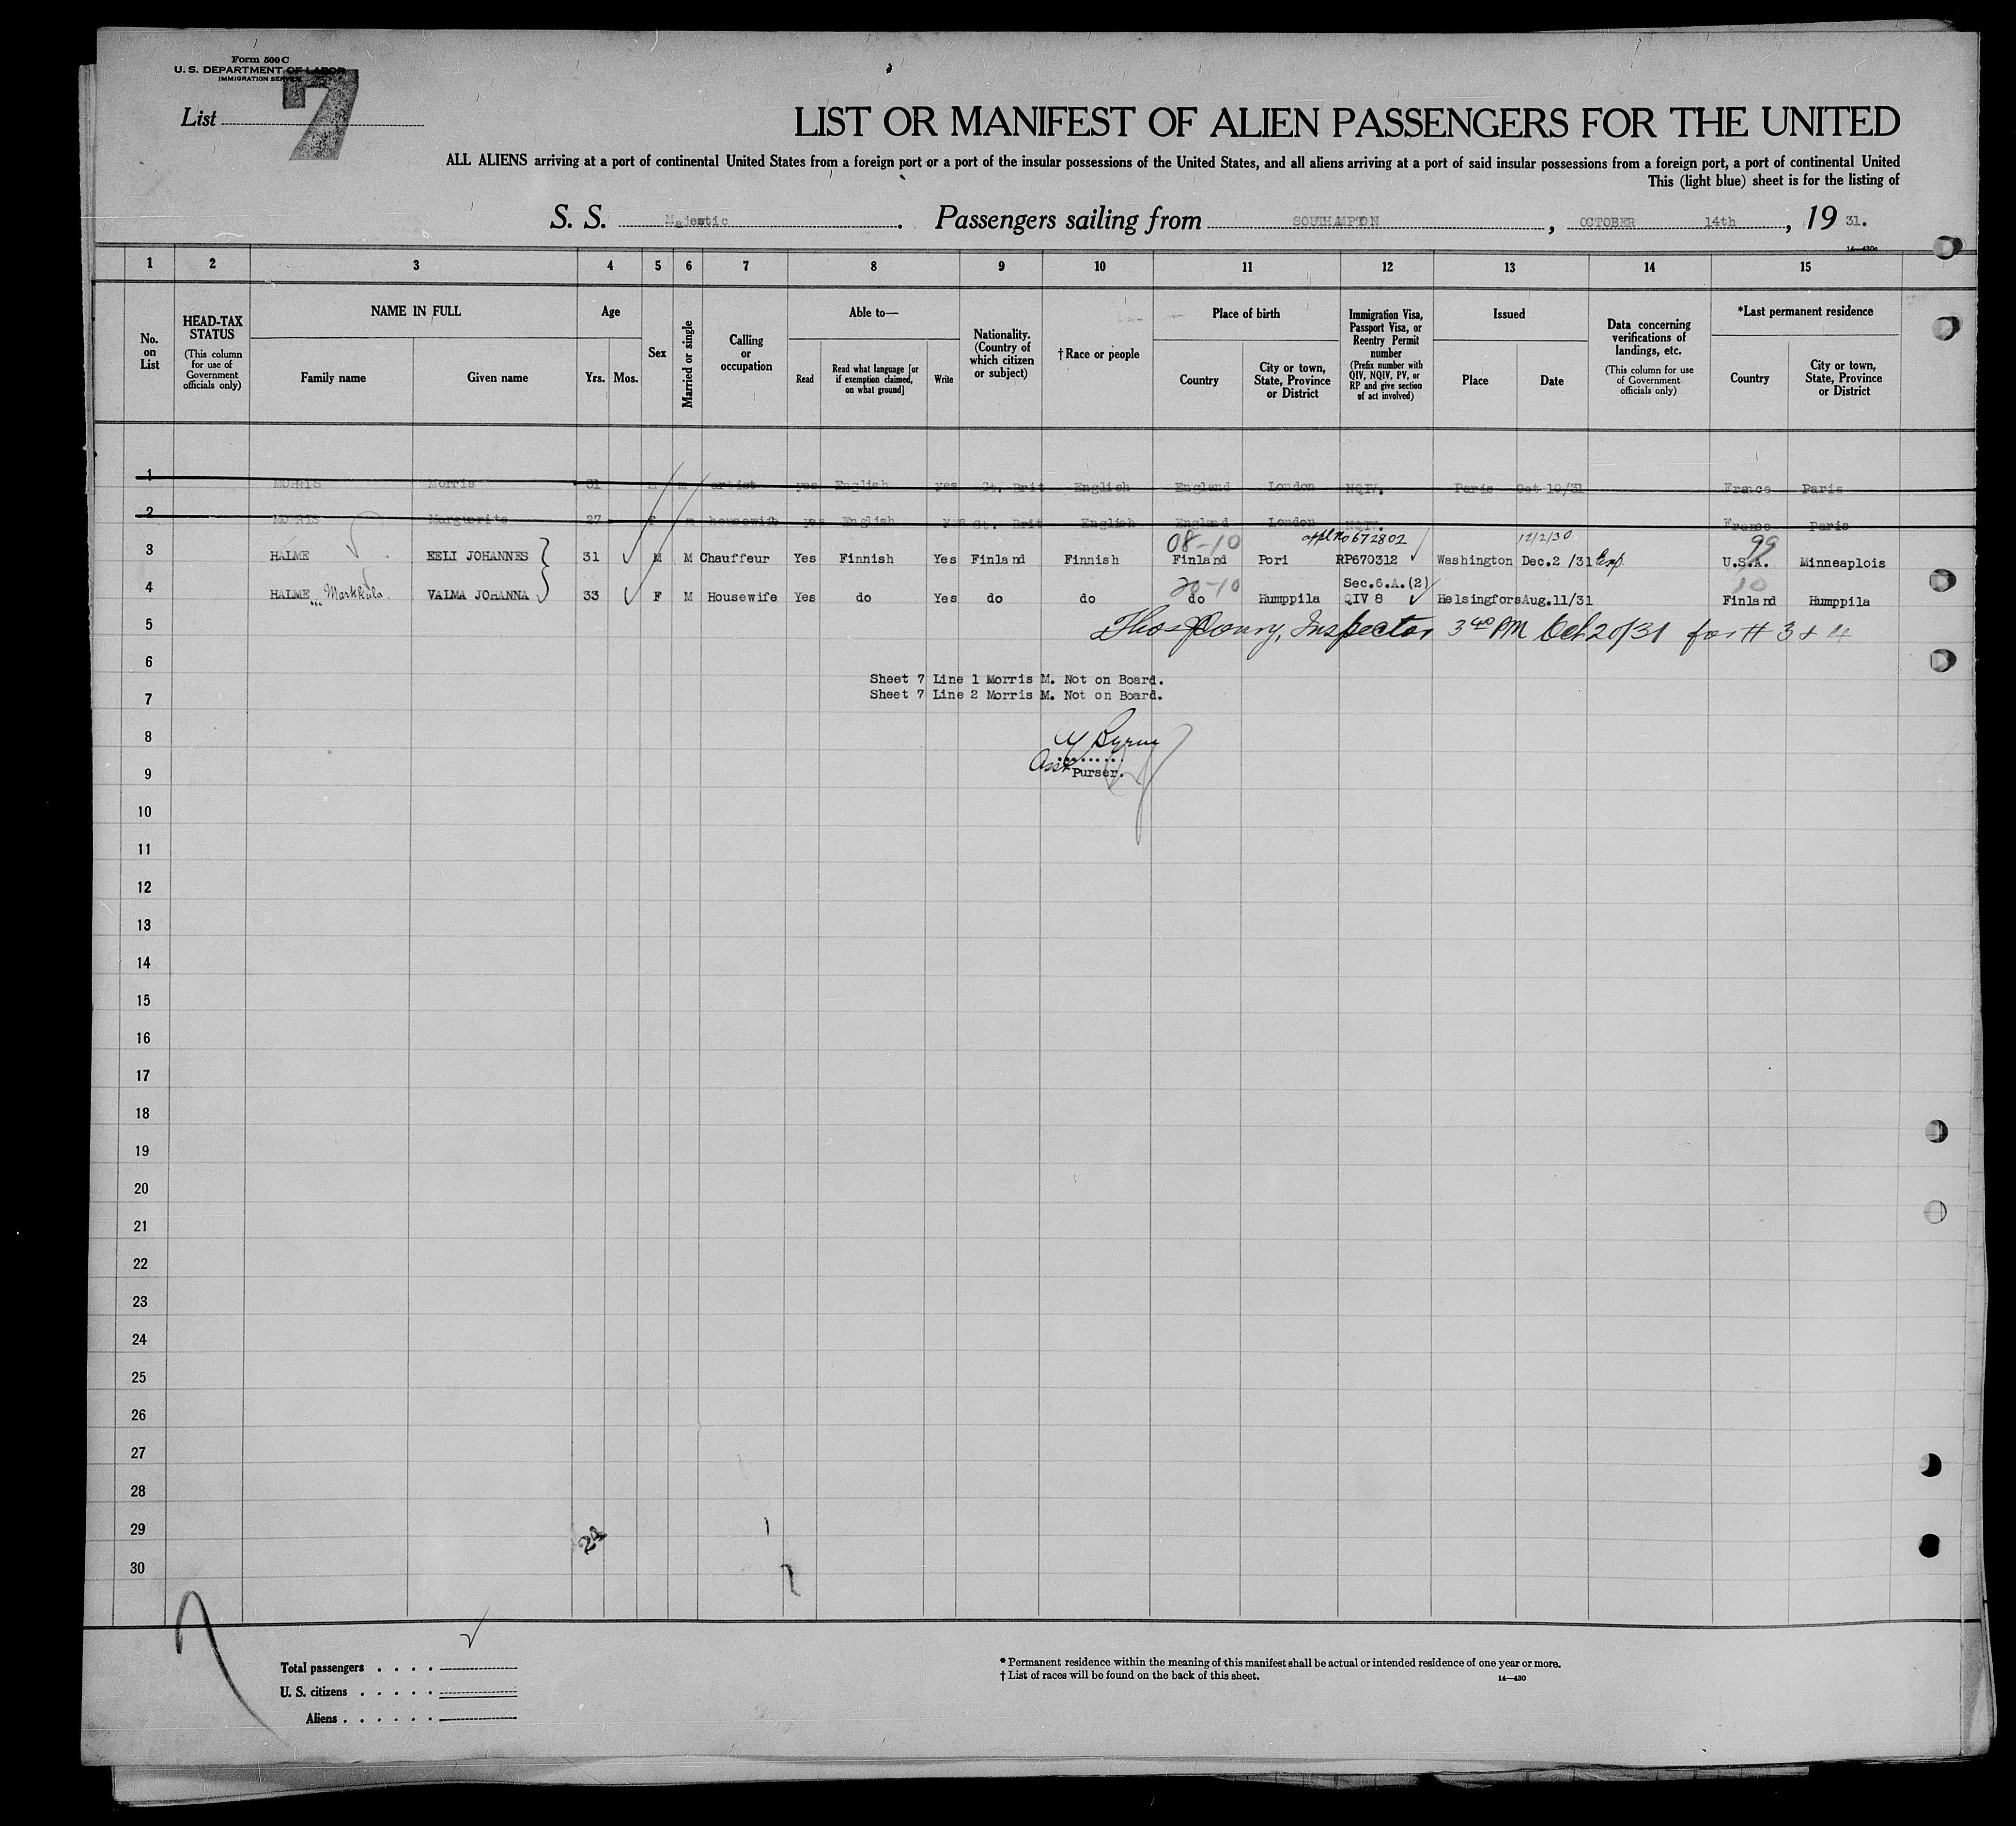 Form 500 C
U. S. DEPARTMENT OF LABOR
IMMIGRATION SERVICE
List 7
LIST OR MANIFEST OF ALIEN PASSENGERS FOR THE UNITED
ALL ALIENS arriving at a port of continental United States from a foreign port or a port of the insular possessions of the United States, and all aliens arriving at a port of said insular possessions from a foreign port, a port of continental United
This (light blue) sheet is for the listing of
S. S. Majestic. Passengers sailing from SOUTHAMPTON, OCTOBER 14th, 19 31.
14—430c
1 2 3 4 5 6 7 8 9 10 11 12 13 14 15
No. on List
HEAD-TAX STATUS
(This column for use of Government officials only)
NAME IN FULL
Family name
Given name
Age
Yrs. Mos.
Sex
Married or single
Calling or occupation
Able to—
Read
Read what language [or if exemption claimed, on what ground]
Write
Nationality. (Country of which citizen or subject)
† Race or people
Place of birth
Country
City or town, State, Province or District
Immigration Visa, Passport Visa, or Reentry Permit number
(Prefix number with QIV, NQIV, PV, or RP and give section of act involved)
Issued
Place
Date
Data concerning verifications of landings, etc.
(This column for use of Government officials only)
*Last permanent residence
Country
City or town, State, Province or District
1 MORRIS Morris 31 M m artist yes English yes Gt. Brit English England London NQIV. Paris Oct 10/31 France Paris
2 MORRIS Marguerite 27 F m housewife yes English yes Gt. Brit English England London NQIV. France Paris
08-10 appl No 672802 12/2/30 99
3 HALME EELI JOHANNES 31 M M Chauffeur Yes Finnish Yes Finland Finnish Finland Pori RP670312 Washington Dec.2 /31 Exp U.S.A. Minneaplois
20-10 Sec.6.A.(2) 10
4 HALME Markkula VALMA JOHANNA 33 F M Housewife Yes do Yes do do do Humppila QIV 8 Helsingfors Aug.11/31 Finland Humppila
5 Inspector 3 40 PM Oct 20/31 for # 3 & 4
6
Sheet 7 Line 1 Morris M. Not on Board.
7 Sheet 7 Line 2 Morris M. Not on Board.
8 Byrne
9 Asst Purser.
10
11
12
13
14
15
16
17
18
19
20
21
22
23
24
25
26
27
28
29 24
30
Total passengers . . . .
U. S. citizens . . . . .
Aliens . . . . . .
* Permanent residence within the meaning of this manifest shall be actual or intended residence of one year or more.
† List of races will be found on the back of this sheet.
14—430